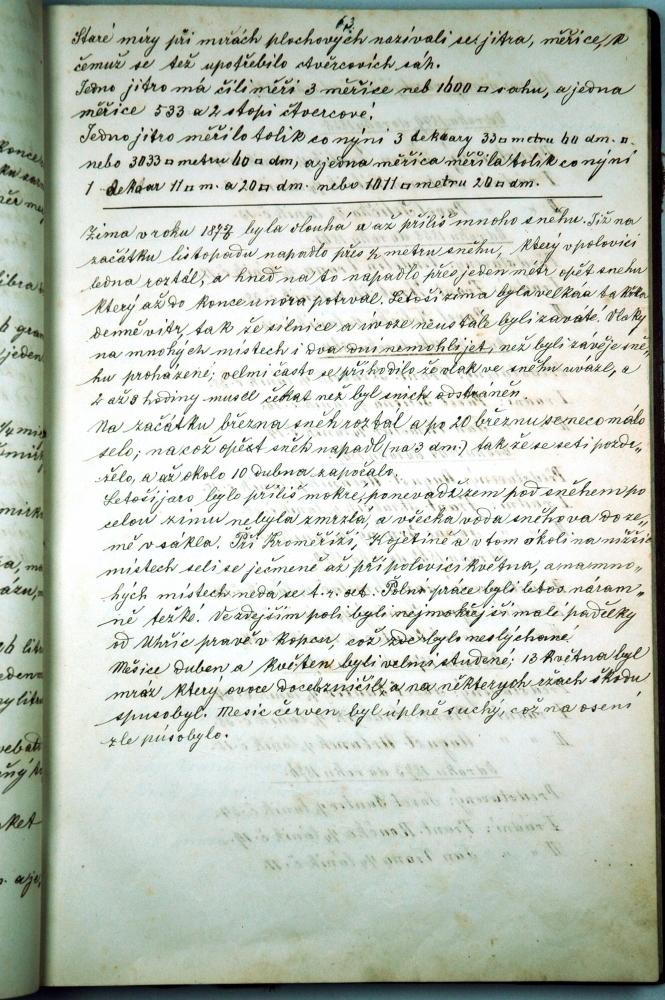 63
Staré míry při mírách plochových nazívali se: jitra, měřice, k
čemuž se též upotřebilo čtvércovich sáh.
Jedno jitro má čili měři 3 měřice neb 1600 □ sahu, a jedna
měřice 533 a 2 stopi čtvercové.
Jedno jitro měřilo tolik co nýní 3 dekaary 33 □ metru 60 dm. □.
nebo 3033 □ metru 60 □ dm, a jedna měřica měřila tolik co nýní
1 dekaar 11 □ m. a 20 □ dm. nebo 1011 □ metru 20 □ dm.
Zima v roku 187 byla dlouhá a až příliš mnoho sněhu. Již na
začátku listopadu napadlo přes ½ metru sněhu, ktery v polovici
ledna roztál, a hneď na to napadlo přes jeden métr opět snehu
který až do konce unóra potrval. Letoši zima byla velká a ta
denně vitr, tak že silnice a úvoze neustále byli zaváté. Vlaky
na mnohých místech i dva dni nemohli jet, než byli závěje sně-
hu proházené; velmi často se přihodilo že vlak ve sněhu uvázl, a
2 až 3 hodiny musel čekat než byl snich odstráněn
Na začátku března sněh roztál a po 20 březnu se neco málo
selo; na což opězt sněh napadl (na 3 dm.) tak že se seti pozdr-
želo, a až okolo 10 dubna započalo.
Letoši jaro bylo příliš mokre, ponevadž zem pod sněhem po
celou zimu nebyla zmrzlá, a všecka voda sněhova do ze-
mě vsákla. Při Kroměříži, Kojetíně a v tom okoli na nižšic
místech seli se ječmeně až při polovici května, a na mno-
hých místech neda se t. r. set. Polni práce byli letos náram-
ně težké. Ve zdejším poli byli nejmokřejší malé padělky
od Uhřic pravě v kopcu, což zde bylo neslýchané.
Měsíce duben a květen byli velmi studené; 13 května byl
mráz, který ovoce docela zničil, a na některych ržách škodu
spusobyl. Mesic červen byl úplně suchý, což na osení
zle púsobylo.